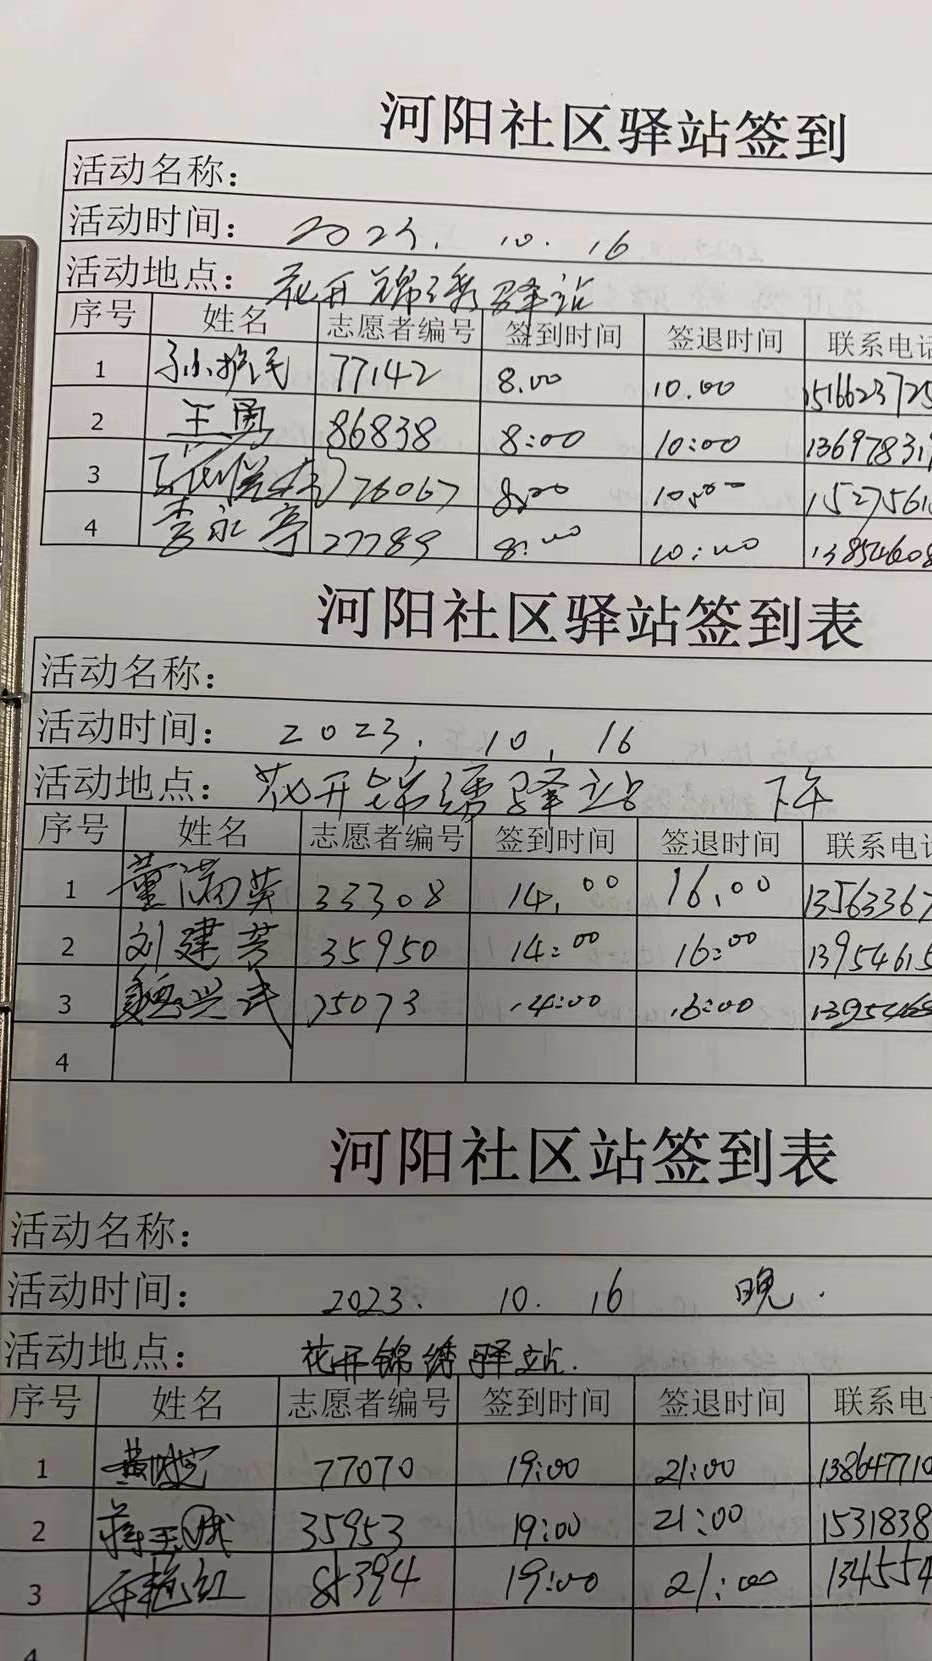 河阳社区驿站签到
活动名称：
活动时间： 2023. 10. 16
活动地点： 花开锦绣驿站
序号 姓名 志愿者编号 签到时间 签退时间 联系电话
1 77142 8.00 10.00 151662372
2 王勇 86838 8:00 10:00 13697831
3 76067 8:00 10:00 1527561
4 李永亭 27789 8:00 10:00 13854608
河阳社区驿站签到表
活动名称：
活动时间： 2023. 10. 16
活动地点： 花开锦绣驿站 下午
序号 姓名 志愿者编号 签到时间 签退时间 联系电话
1 董满英 33308 14.00 16.00 13563367
2 刘建芳 35950 14:00 16:00 13954615
3 魏兴武 75073 14:00 16:00 1395468
4
河阳社区站签到表
活动名称：
活动时间： 2023. 10. 16 晚.
活动地点： 花开锦绣驿站.
序号 姓名 志愿者编号 签到时间 签退时间 联系电
1 77070 19:00 21:00 138647710
2 35953 19:00 21:00 1531838
3 19:00 21:00 134554
4